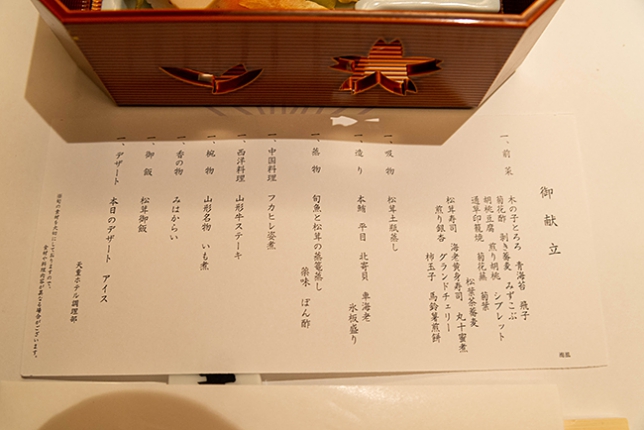 御献立
一、前菜
木の子とろろ 青海苔 飛子
菊花酢 剥き蕎麦 みずこぶ
胡桃豆腐 煎り胡桃 シブレット
通草印籠焼 菊花蒸 菊葉
松葉茶蕎麦
松茸寿司 海老黄身寿司 丸十蜜煮
煎り銀杏 グランドチェリー
柿玉子 馬鈴薯煎餅
一、吸物 松茸土瓶蒸し
一、造り 本鮪 平目 北寄貝 車海老
氷板盛り
一、蒸物 旬魚と松茸の蒸篭蒸し
薬味 ぽん酢
一、中国料理 フカヒレ姿煮
一、西洋料理 山形牛ステーキ
一、椀物 山形名物 いも煮
一、香の物 みはからい
一、御飯 松茸御飯
一、デザート 本日のデザート アイス
天童ホテル調理部
食材や料理内容が異なる場合がございます。